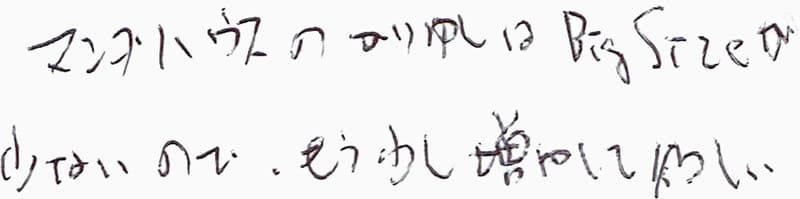 マンガハウスの かり押しは Big Sizeが
少ないので、もう少し増やして欲しい